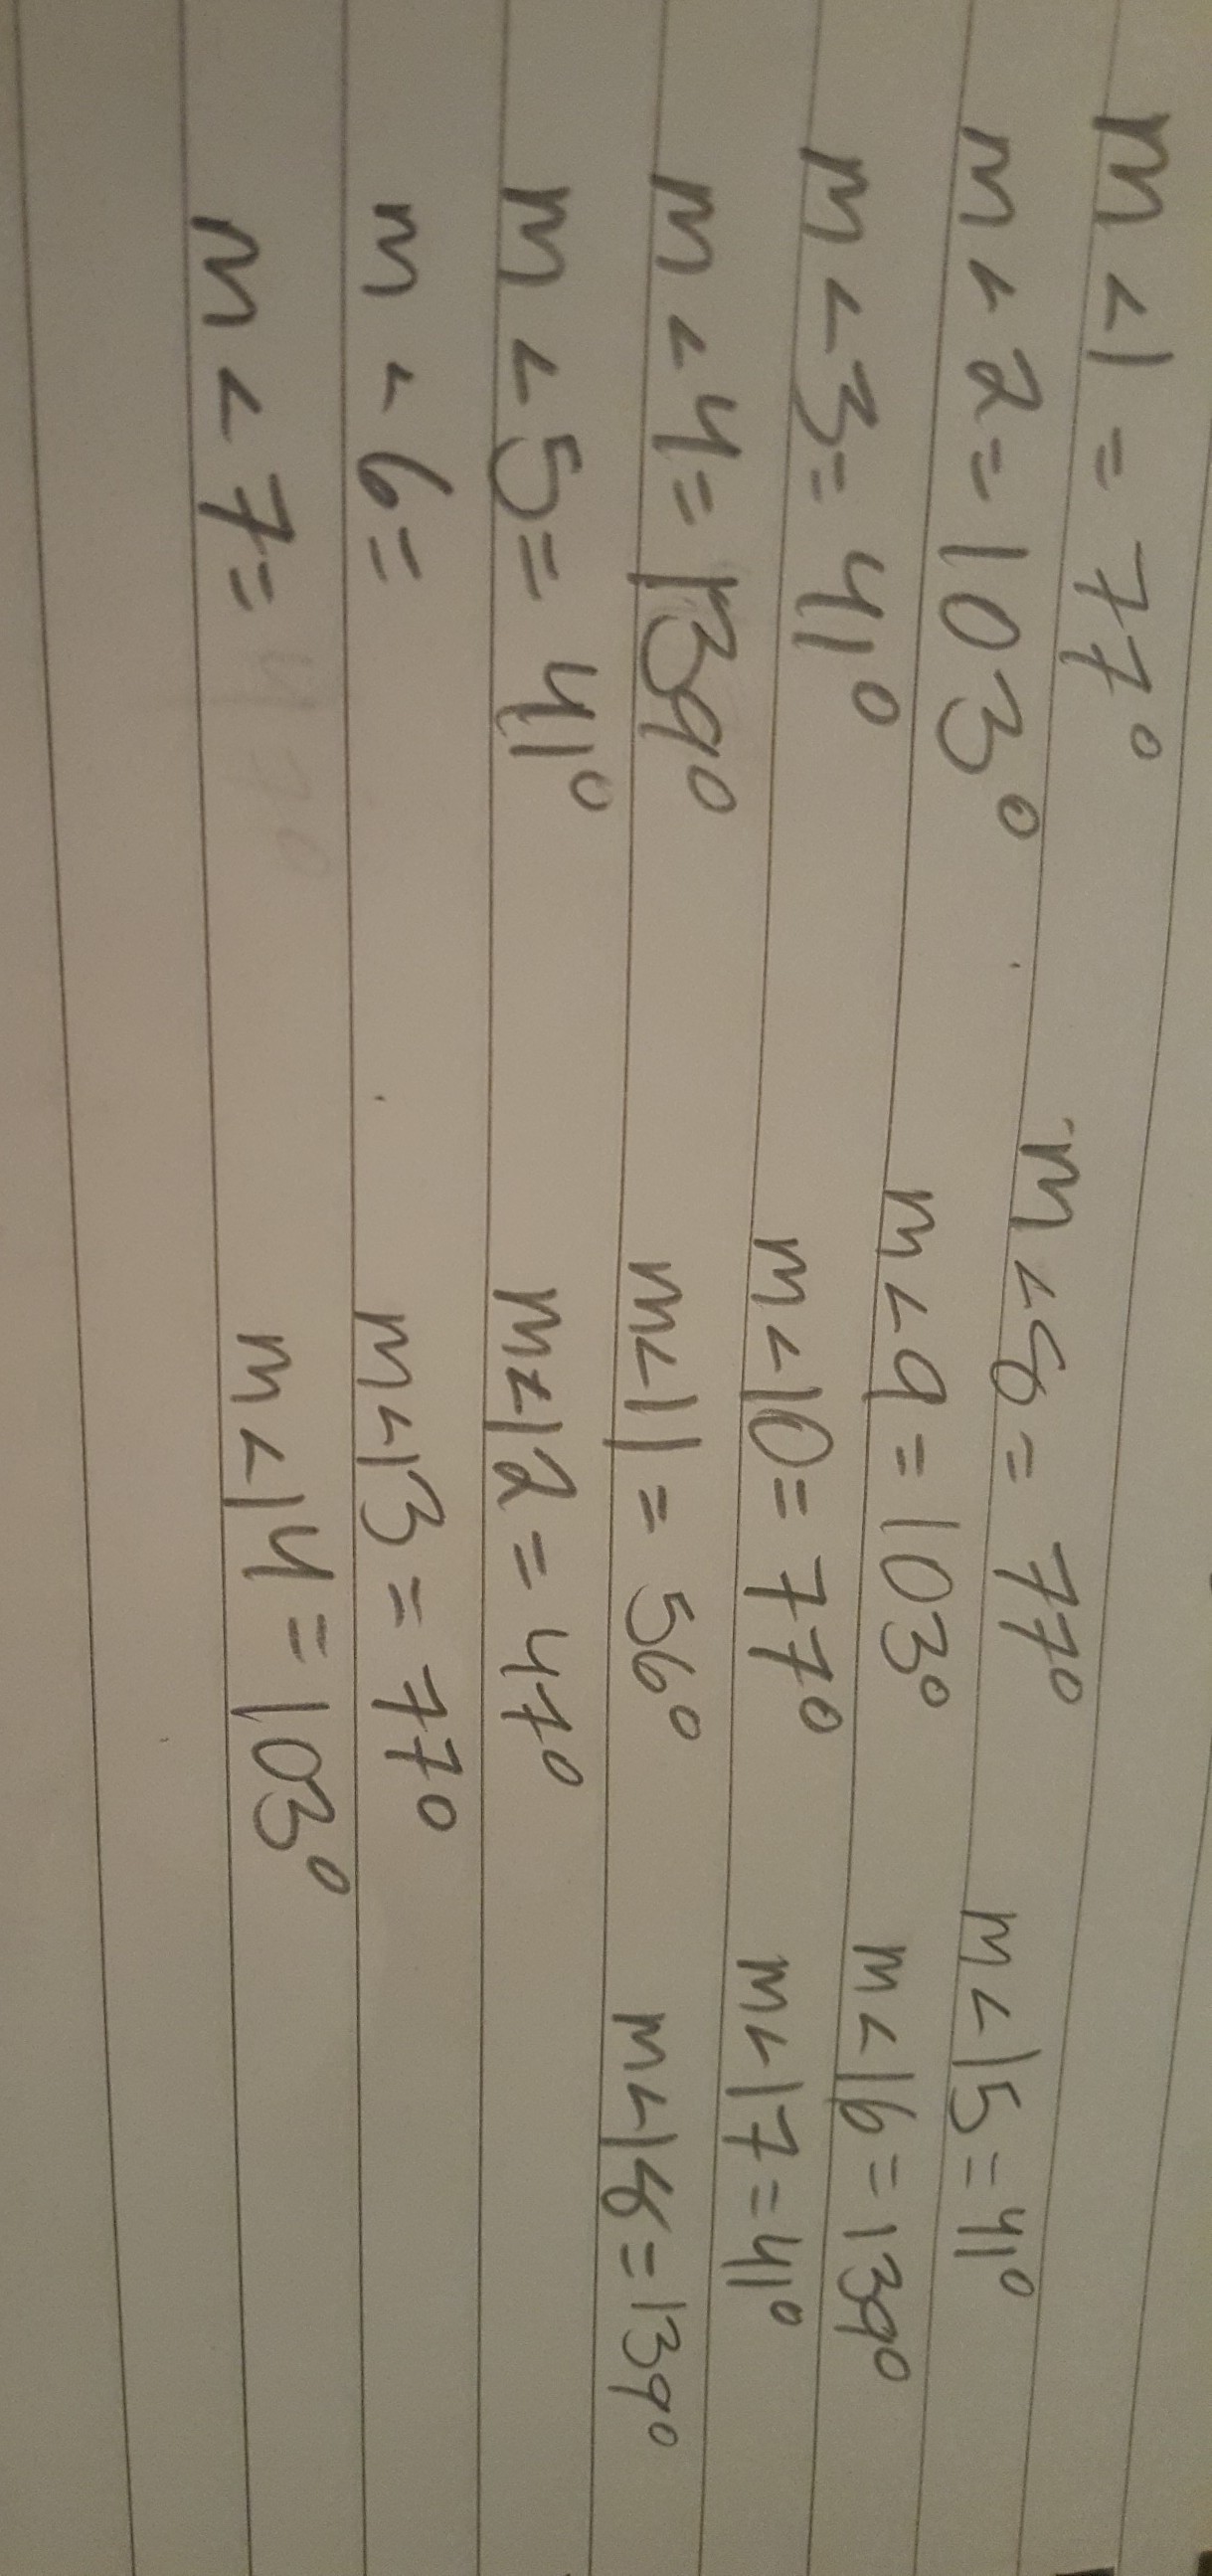 m<1 = 77°
m<2 = 103°
m<3 = 41°
m<4 = 139°
m<5 = 41°
m<6 =
m<7 =
m<8 = 77°
m<9 = 103°
m<10 = 77°
m<11 = 56°
m<12 = 47°
m<13 = 77°
m<14 = 103°
m<15 = 41°
m<16 = 139°
m<17 = 41°
m<18 = 139°